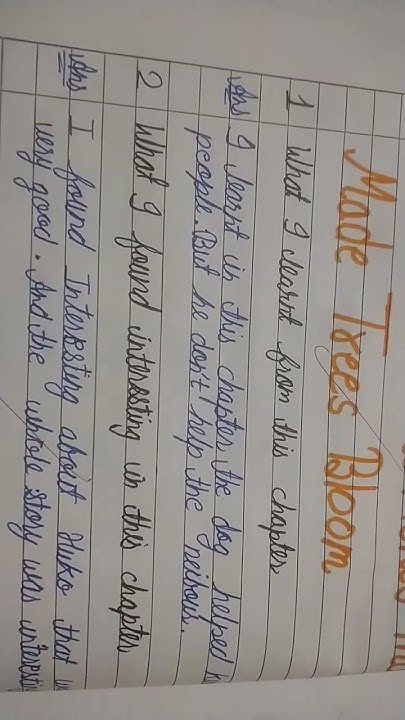 Made Trees Bloom
1 What I learnt from this chapter
Ans I learnt in this chapter the dog helped
people. But he don't help the neibour.
2 What I found interesting in this chapter
Ans I found Interesting about Muko that
very good. And the whole story was